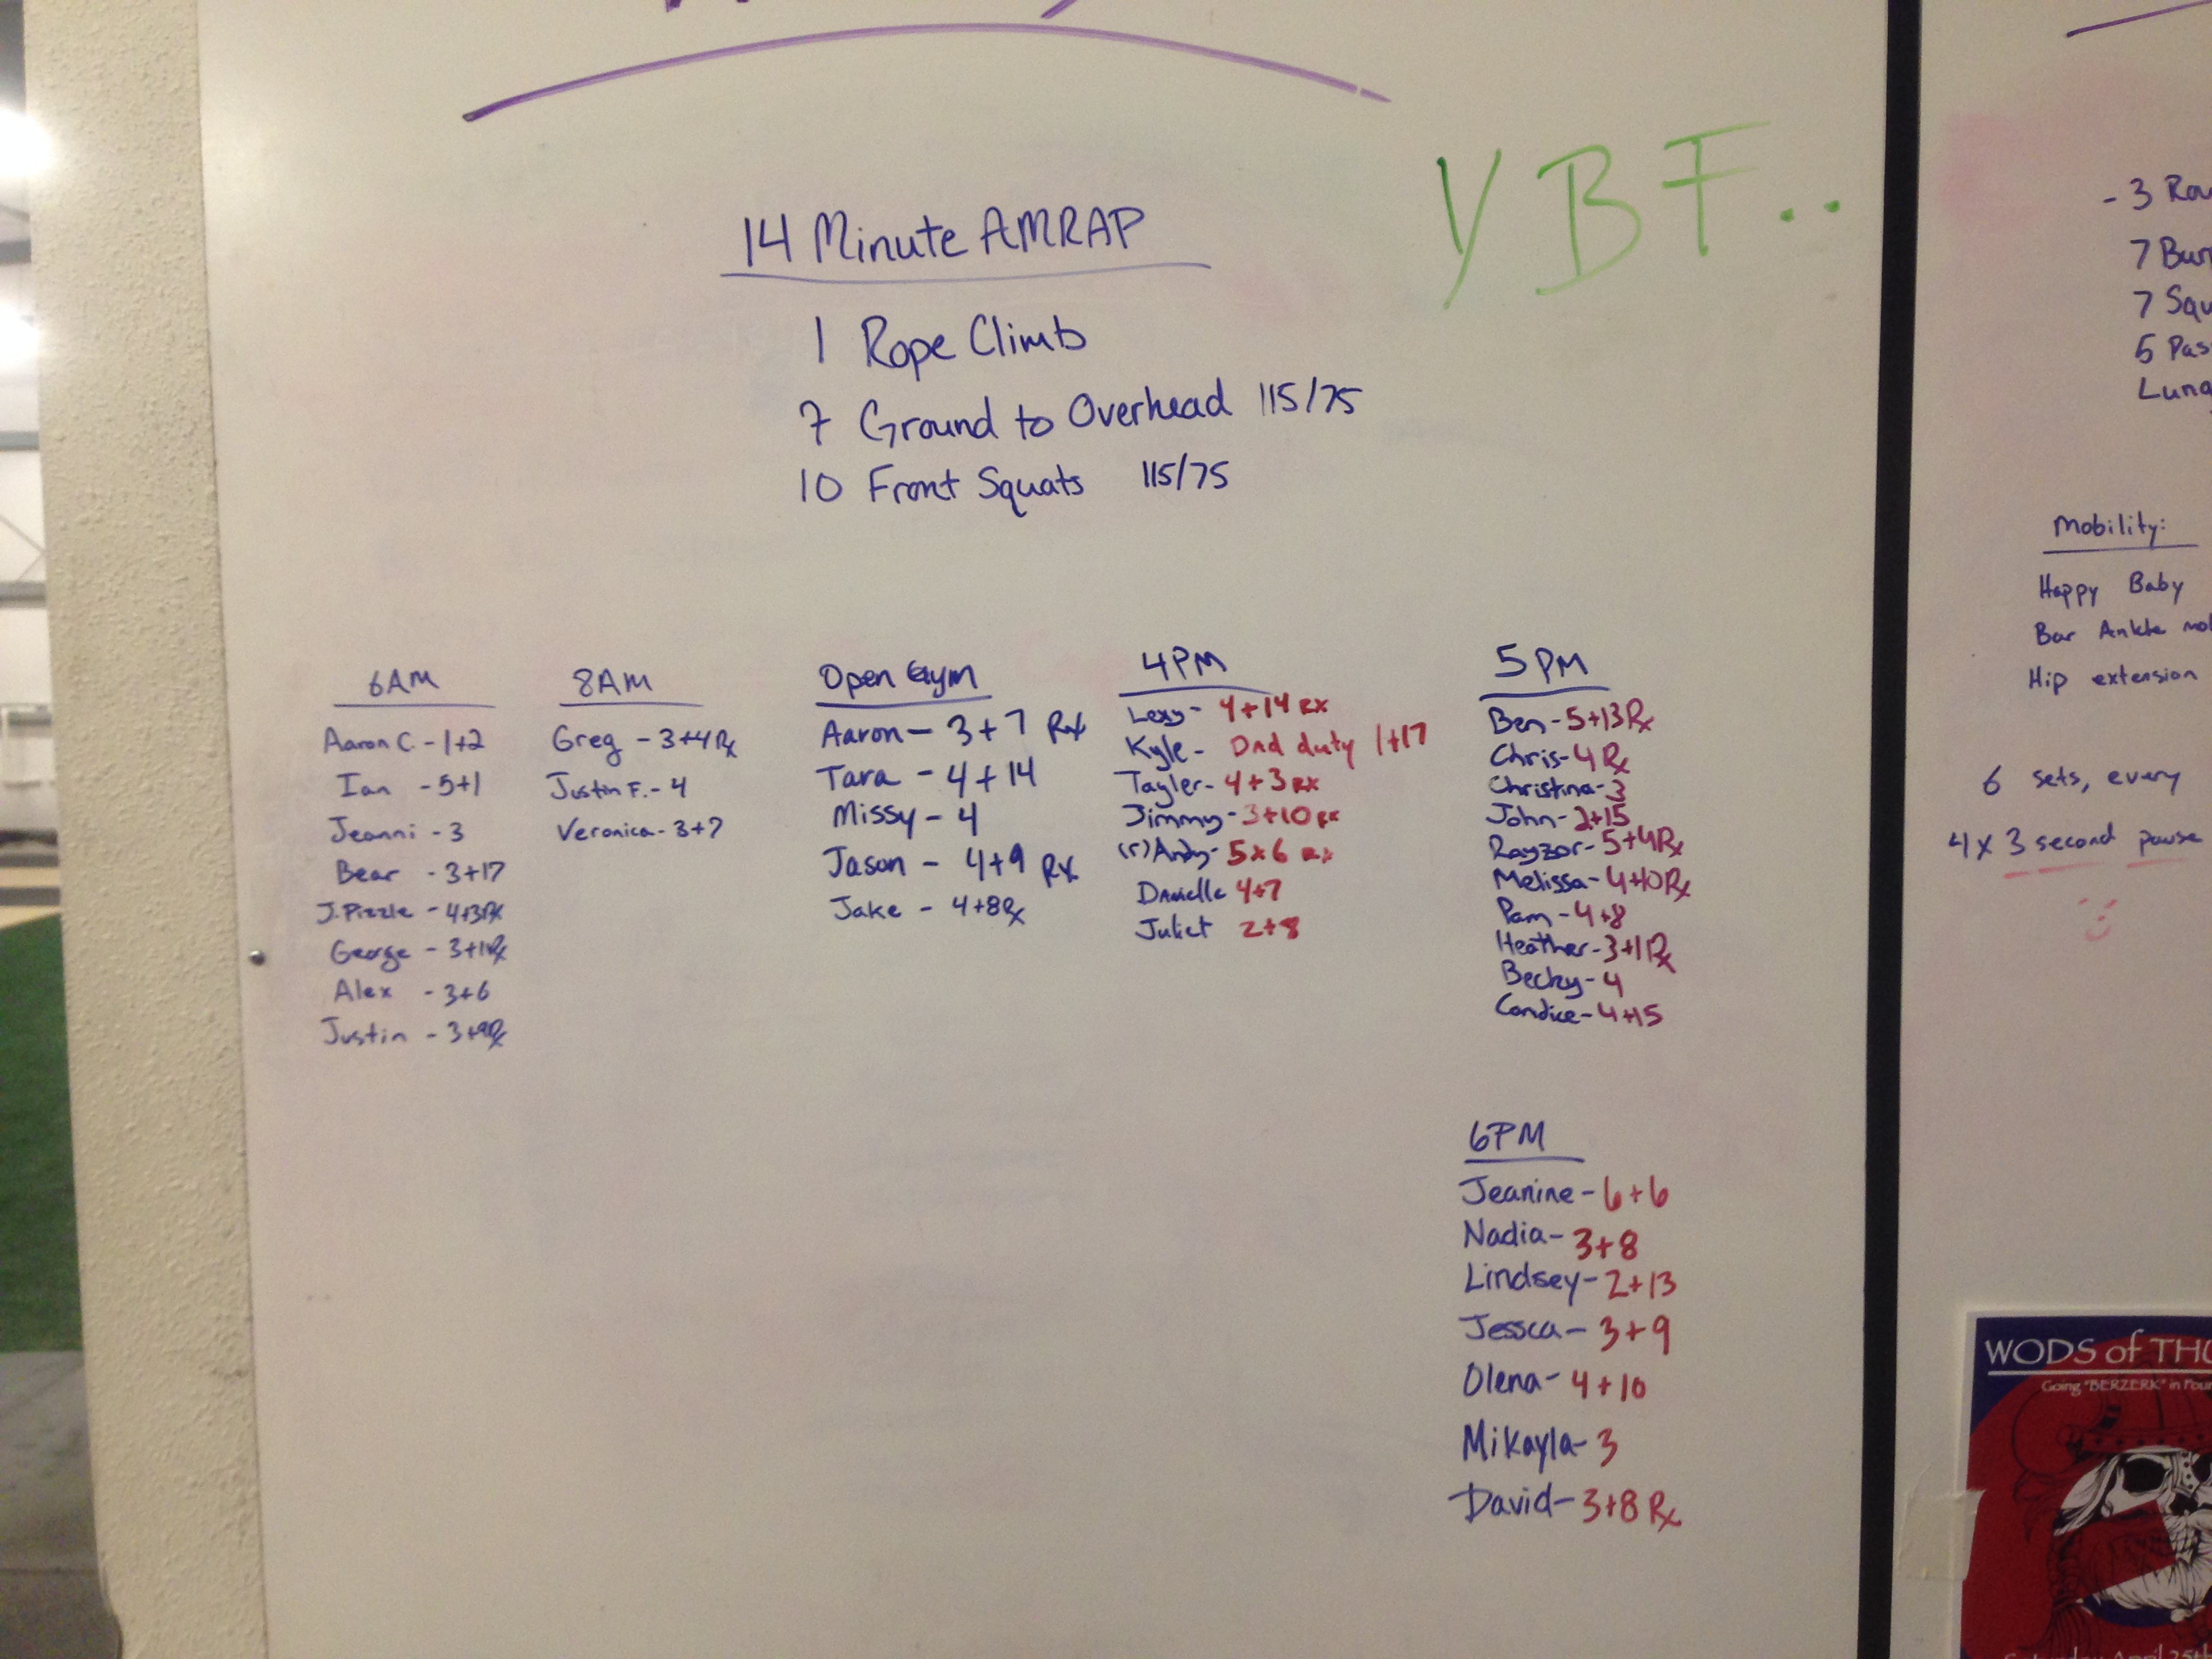 YBF..
14 Minute AMRAP
1 Rope Climb
7 Ground to Overhead 115/75
10 Front Squats 115/75
6AM
Aaron C. - 1+2
Ian - 5+1
Jeanni - 3
Bear - 3+17
J.Pizzle - 4+3Rx
George - 3+1Rx
Alex - 3+6
Justin - 3+9Rx
8AM
Greg - 3+4Rx
Justin F. - 4
Veronica - 3+7
Open Gym
Aaron - 3+7 Rx
Tara - 4+14
Missy - 4
Jason - 4+9 Rx
Jake - 4+8Rx
4PM
Lexy - 4+14 Rx
Kyle - Dad duty 1+17
Tayler - 4+3 Rx
Jimmy - 3+10 Rx
(r)Andy - 5+6 Rx
Danielle 4+7
Juliet 2+8
5PM
Ben - 5+13Rx
Chris - 4 Rx
Christina - 3
John - 2+15
Rayzor - 5+4Rx
Melissa - 4+10Rx
Pam - 4+8
Heather - 3+1Rx
Becky - 4
Candice - 4+15
6PM
Jeanine - 6+6
Nadia - 3+8
Lindsey - 2+13
Jessca - 3+9
Olena - 4+10
Mikayla - 3
David - 3+8 Rx
- 3
7
7
5
Mobility:
Happy Baby
Bar Ankle
Hip extension
6 sets, every
4 x 3 second pause
WODS of
Going "BERZERK" in
Saturday April 25th